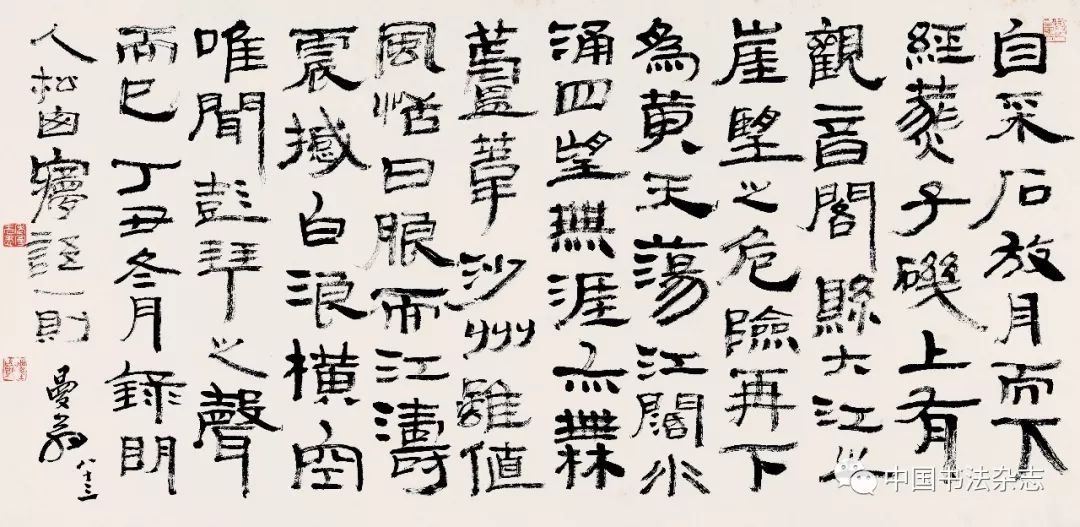 自采石放月而下
經燕子磯上有
觀音閣縣大江
崖塹之危險再下
為黃天蕩江闊水
涌四望無涯亦無林
蘆葦沙州雖值
風恬日暖而江濤
震撼白浪橫空
唯聞彭拜之聲
而已丁丑冬月錄明
人松窗㝱語一則
曼翁八十三
中国书法杂志